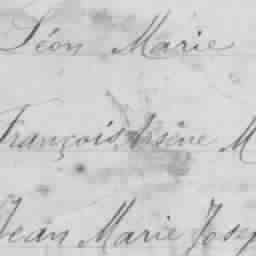 Léon Marie
François Arsène M
Jean Marie Josep